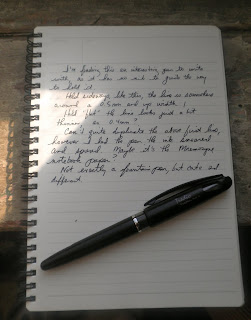 I'm finding this an interesting pen to write
with, as it has no nib to guide the way
to hold it.
Held sideways like this, the line is somewhere
around a 0.5mm end up width!
Held "flat" the line looks just a bit
thinner, as 0.4mm?
Can't quite duplicate the above first line,
however I had the pen the ink smeared
and spread. Maybe it's the
notebook paper.
Not exactly a fountain pen, but cute and
different.